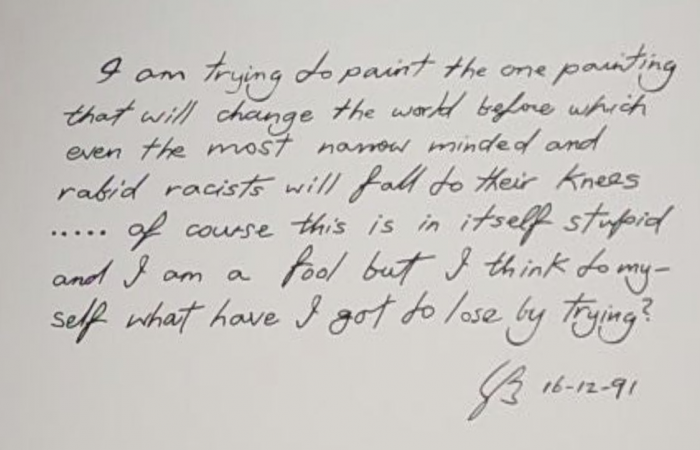 I am trying to paint the one painting
that will change the world before which
even the most narrow minded and
rabid racists will fall to their knees
..... of course this is in itself stupid
and I am a fool but I think to my-
self what have I got to lose by trying?
GB 16-12-91